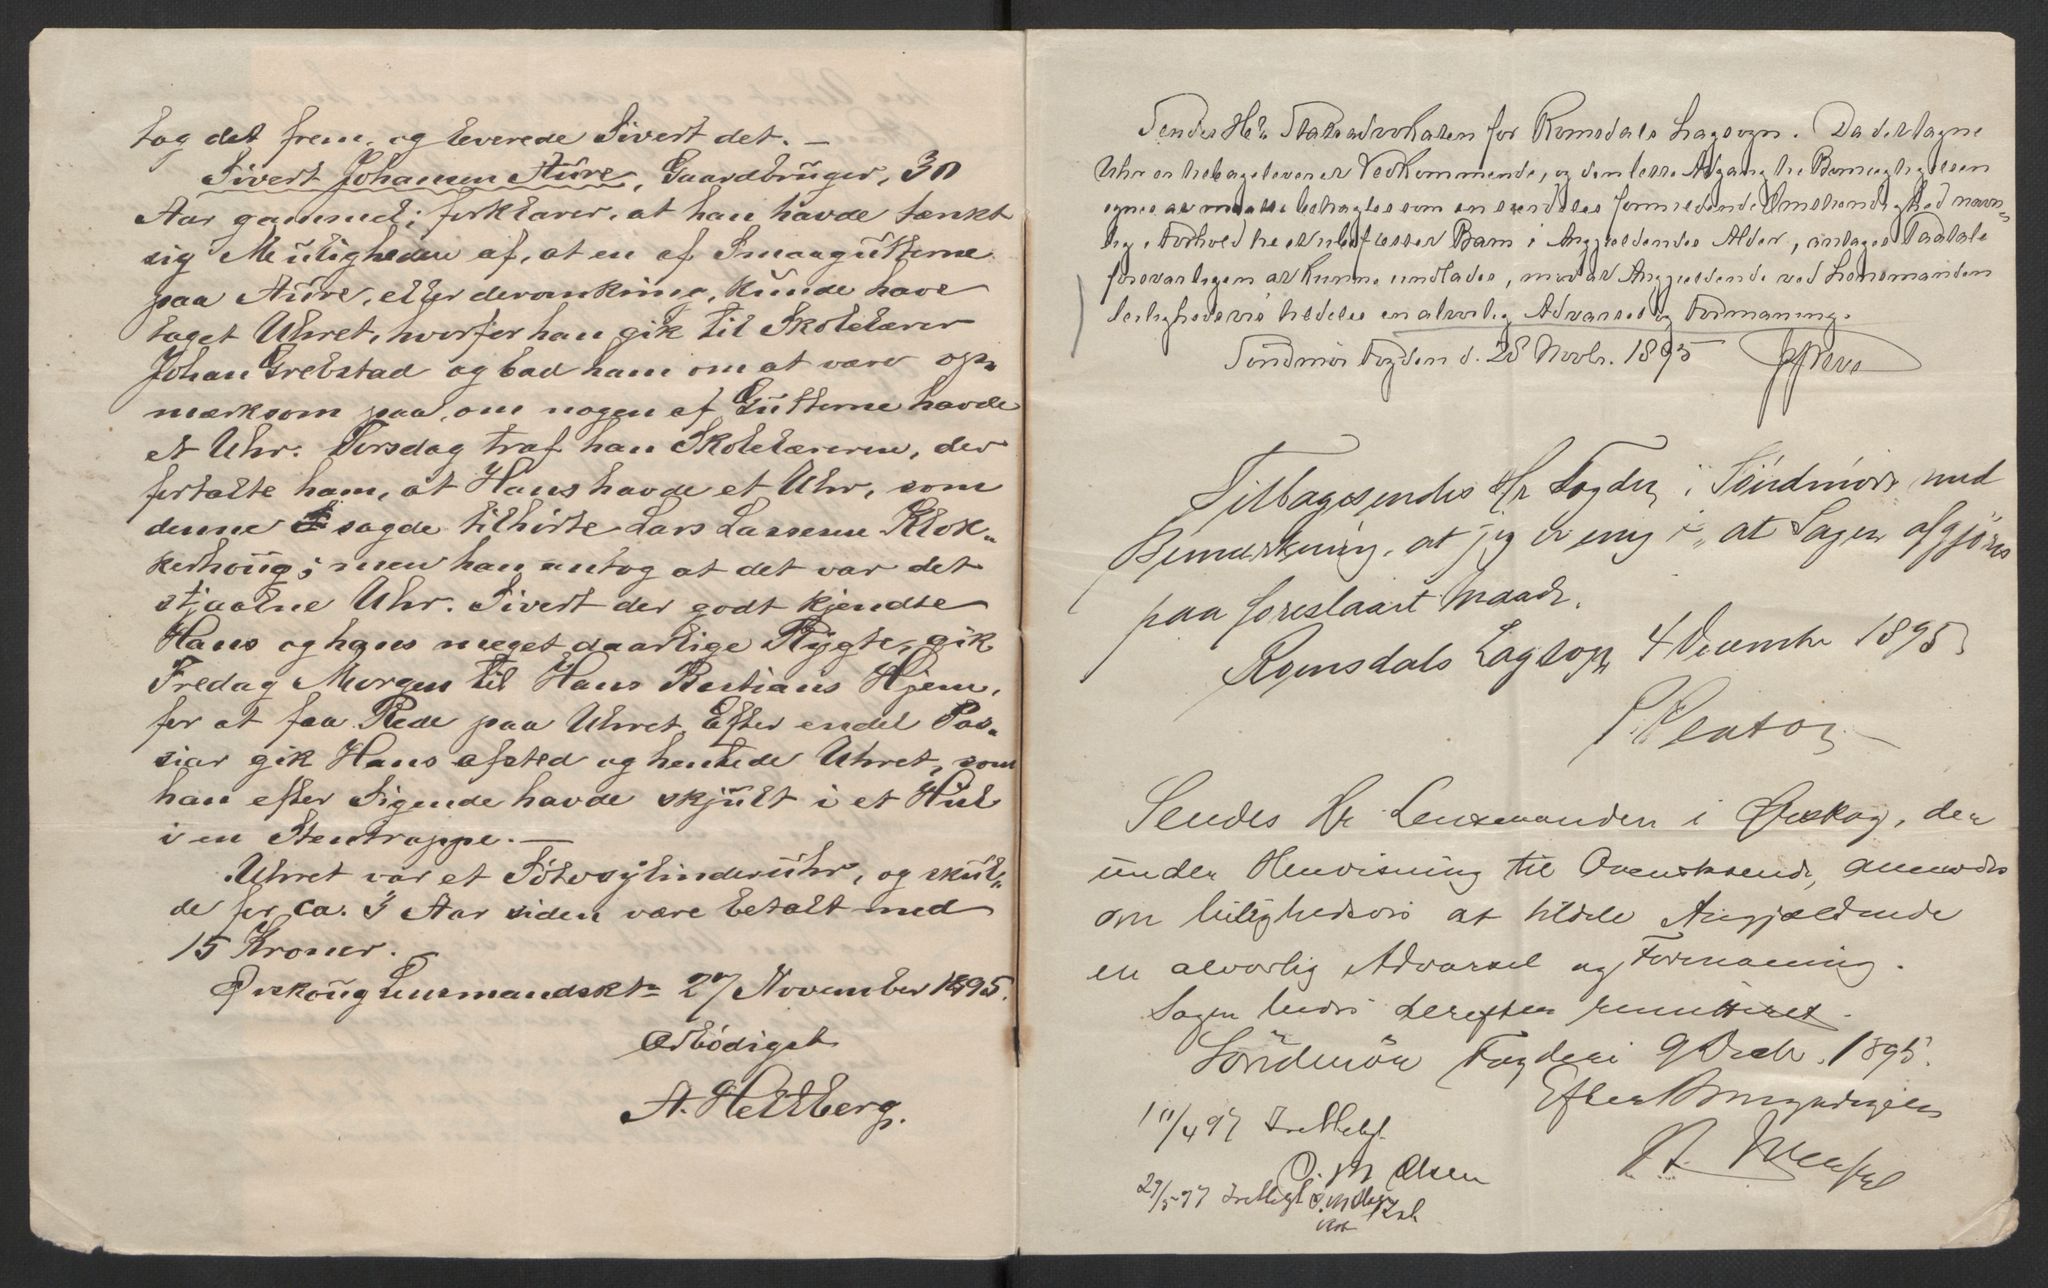 tog det frem, og leverede Sivert det. —
Sivert Johansen Aure, Gaardbruger, 30
Aar gammel; forklarer, at han havde tænkt
sig Muligheden af, at en af Smaagutterne
paa Aure, eller deromkring, kunde have
taget Uhret, hvorfor han gik til Skolelærer
Johan Grebstad og bad ham om at være op-
mærksom paa, om nogen af Gutterne havde
et Uhr. Torsdag traf han Skolelæreren, der
fortalte ham, at Hans havde et Uhr, som
denne sagde tilhørte Lars Larssen Klok-
kerhoug; men han antog at det var det
stjaalne Uhr. Sivert der godt kjendte
Hans og hans meget daarlige Rygte, gik
Fredag Morgen til Hans Bastians Hjem,
for at faa Rede paa Uhret. Efter endel Pas-
siar gik Hans afsted og hentede Uhret, som
han efter Sigende havde skjult i et Hul
i en Stentrappe. —
Uhret var et Sølvsylinderuhr, og skul-
de for ca. 3 Aar siden være betalt med
15 Kroner.
Ørskoug Lensmandskt. 27 November 1895.
Ærbødigst
A. Hellberg.
Sendes Hr. Statsadvokaten for Romsdals Lagsogn. Da det tagne
Uhr er tilbageleveret Vedkommende, og den lette Adgang til Bemægtigelsen
synes at maatte betragtes som en særdeles formildende Omstændighed navn-
lig i Forhold til et ubefæstet Barn i Angjældendes Alder, antages Paatale
forsvarligen at kunne undlades, mod at Angjældende ved Lensmanden
leilighedsvis tildeles en alvorlig Advarsel og Formaning.
Søndmør Fogderi d. 28 Novbr. 1895
Tilbagesendes Hr Fogden i Søndmøre med
Bemærkning, at jeg er enig i, at Sagen afgjøres
paa foreslaaet Maade.
Romsdals Lagsogn 4 December 1895
Sendes Hr Lensmanden i Ørskog, der
under Henvisning til Ovenstaaende, anmodes
om leilighedsvis at tildele Angjældende
en alvorlig Advarsel og Formaning.
Sagen bedes derefter remitteret.
Søndmør Fogderi 9 Decbr. 1895.
Efter Bemyndigelse
10/4 97
O. M Olsen
29/5 97